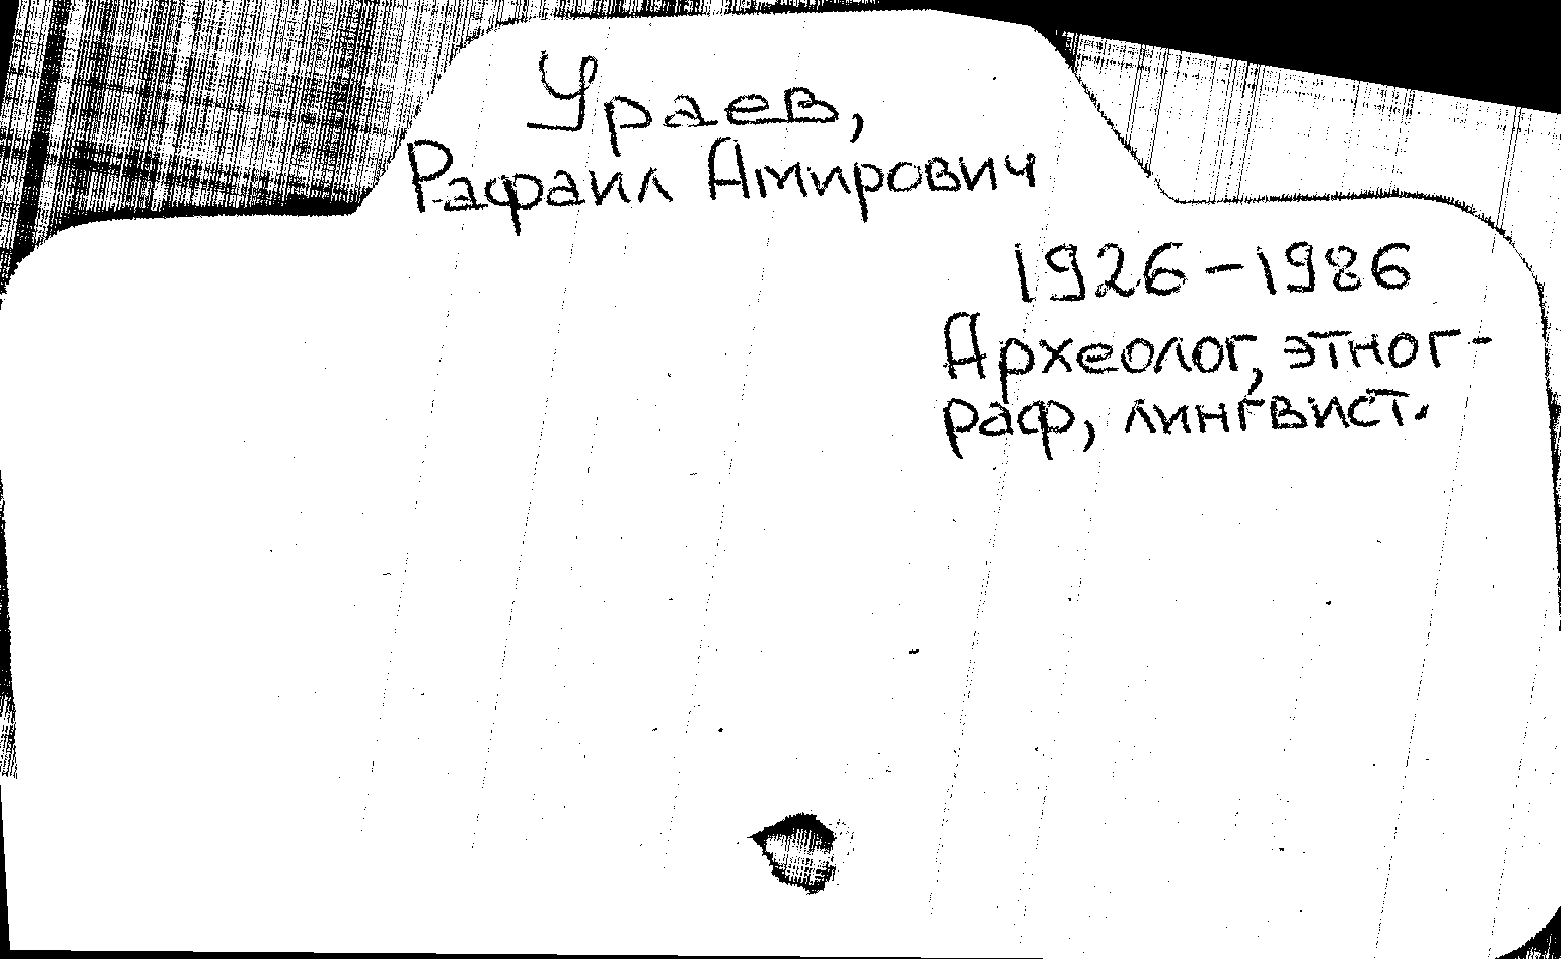 Ураев,
Рафаил Амирович
1926-1986
Археолог, этног-
раф, лингвист.